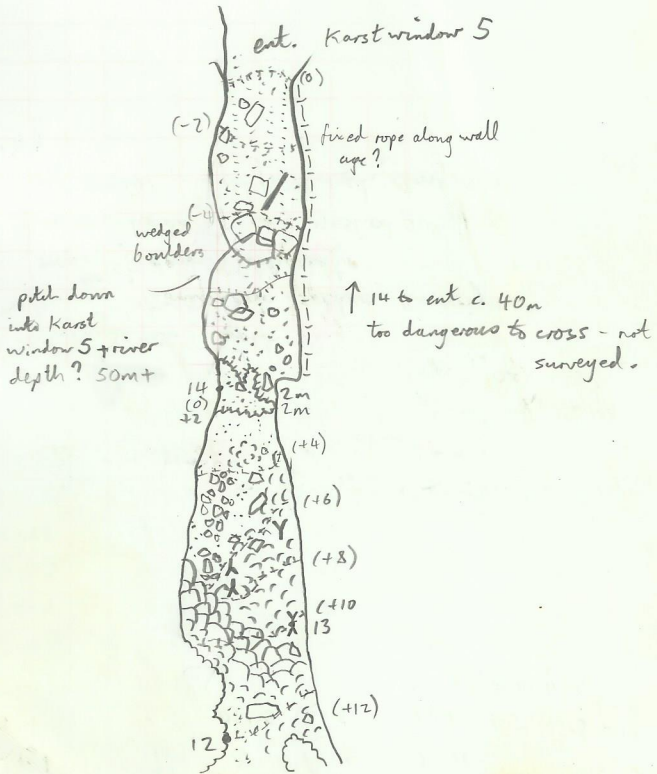 ent. Karst window 5
(0)
(-2)
fixed rope along wall
age?
(-4)
wedged
boulders
pitch down
into Karst
window 5 + river
depth? 50m+
↑ 14 to ent. c. 40m
too dangerous to cross - not
surveyed.
14
2m
(0)
2m
+2
(+4)
(+6)
(+8)
(+10
13
(+12)
12